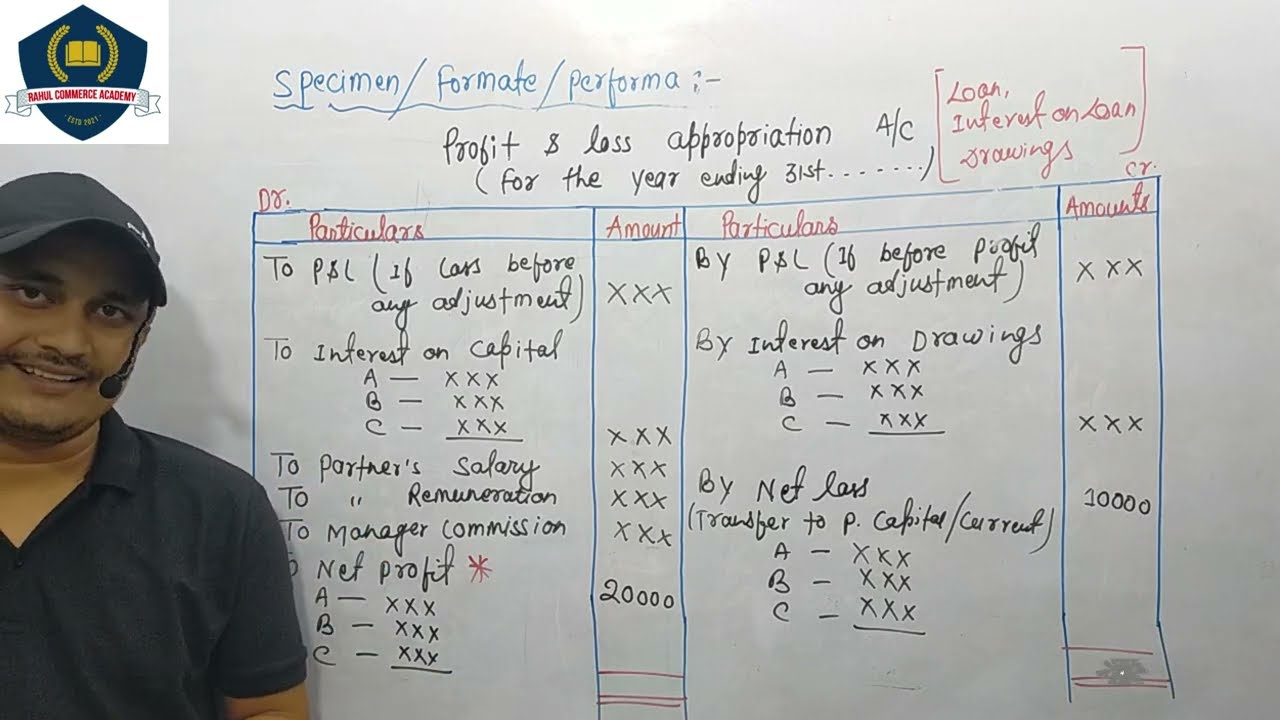 RAHUL COMMERCE ACADEMY
ESTD 2021
Specimen/Formate/Performa :-
Profit & loss appropriation A/C
(for the year ending 31st........)
Loan,
Interest on Loan
Drawings
Dr.
Cr.
Particulars Amount Particulars Amounts
To P&L (If Loss before
any adjustment) XXX
To Interest on Capital
A — XXX
B — XXX
C — XXX XXX
To Partner's Salary XXX
To " Remuneration XXX
To Manager Commission XXX
Net Profit *
A — XXX 20000
B — XXX
C — XXX
By P&L (If before profit
any adjustment) XXX
By Interest on Drawings
A — XXX
B — XXX
C — XXX XXX
By Net loss 10000
(Transfer to P. Capital/Current)
A — XXX
B — XXX
C — XXX